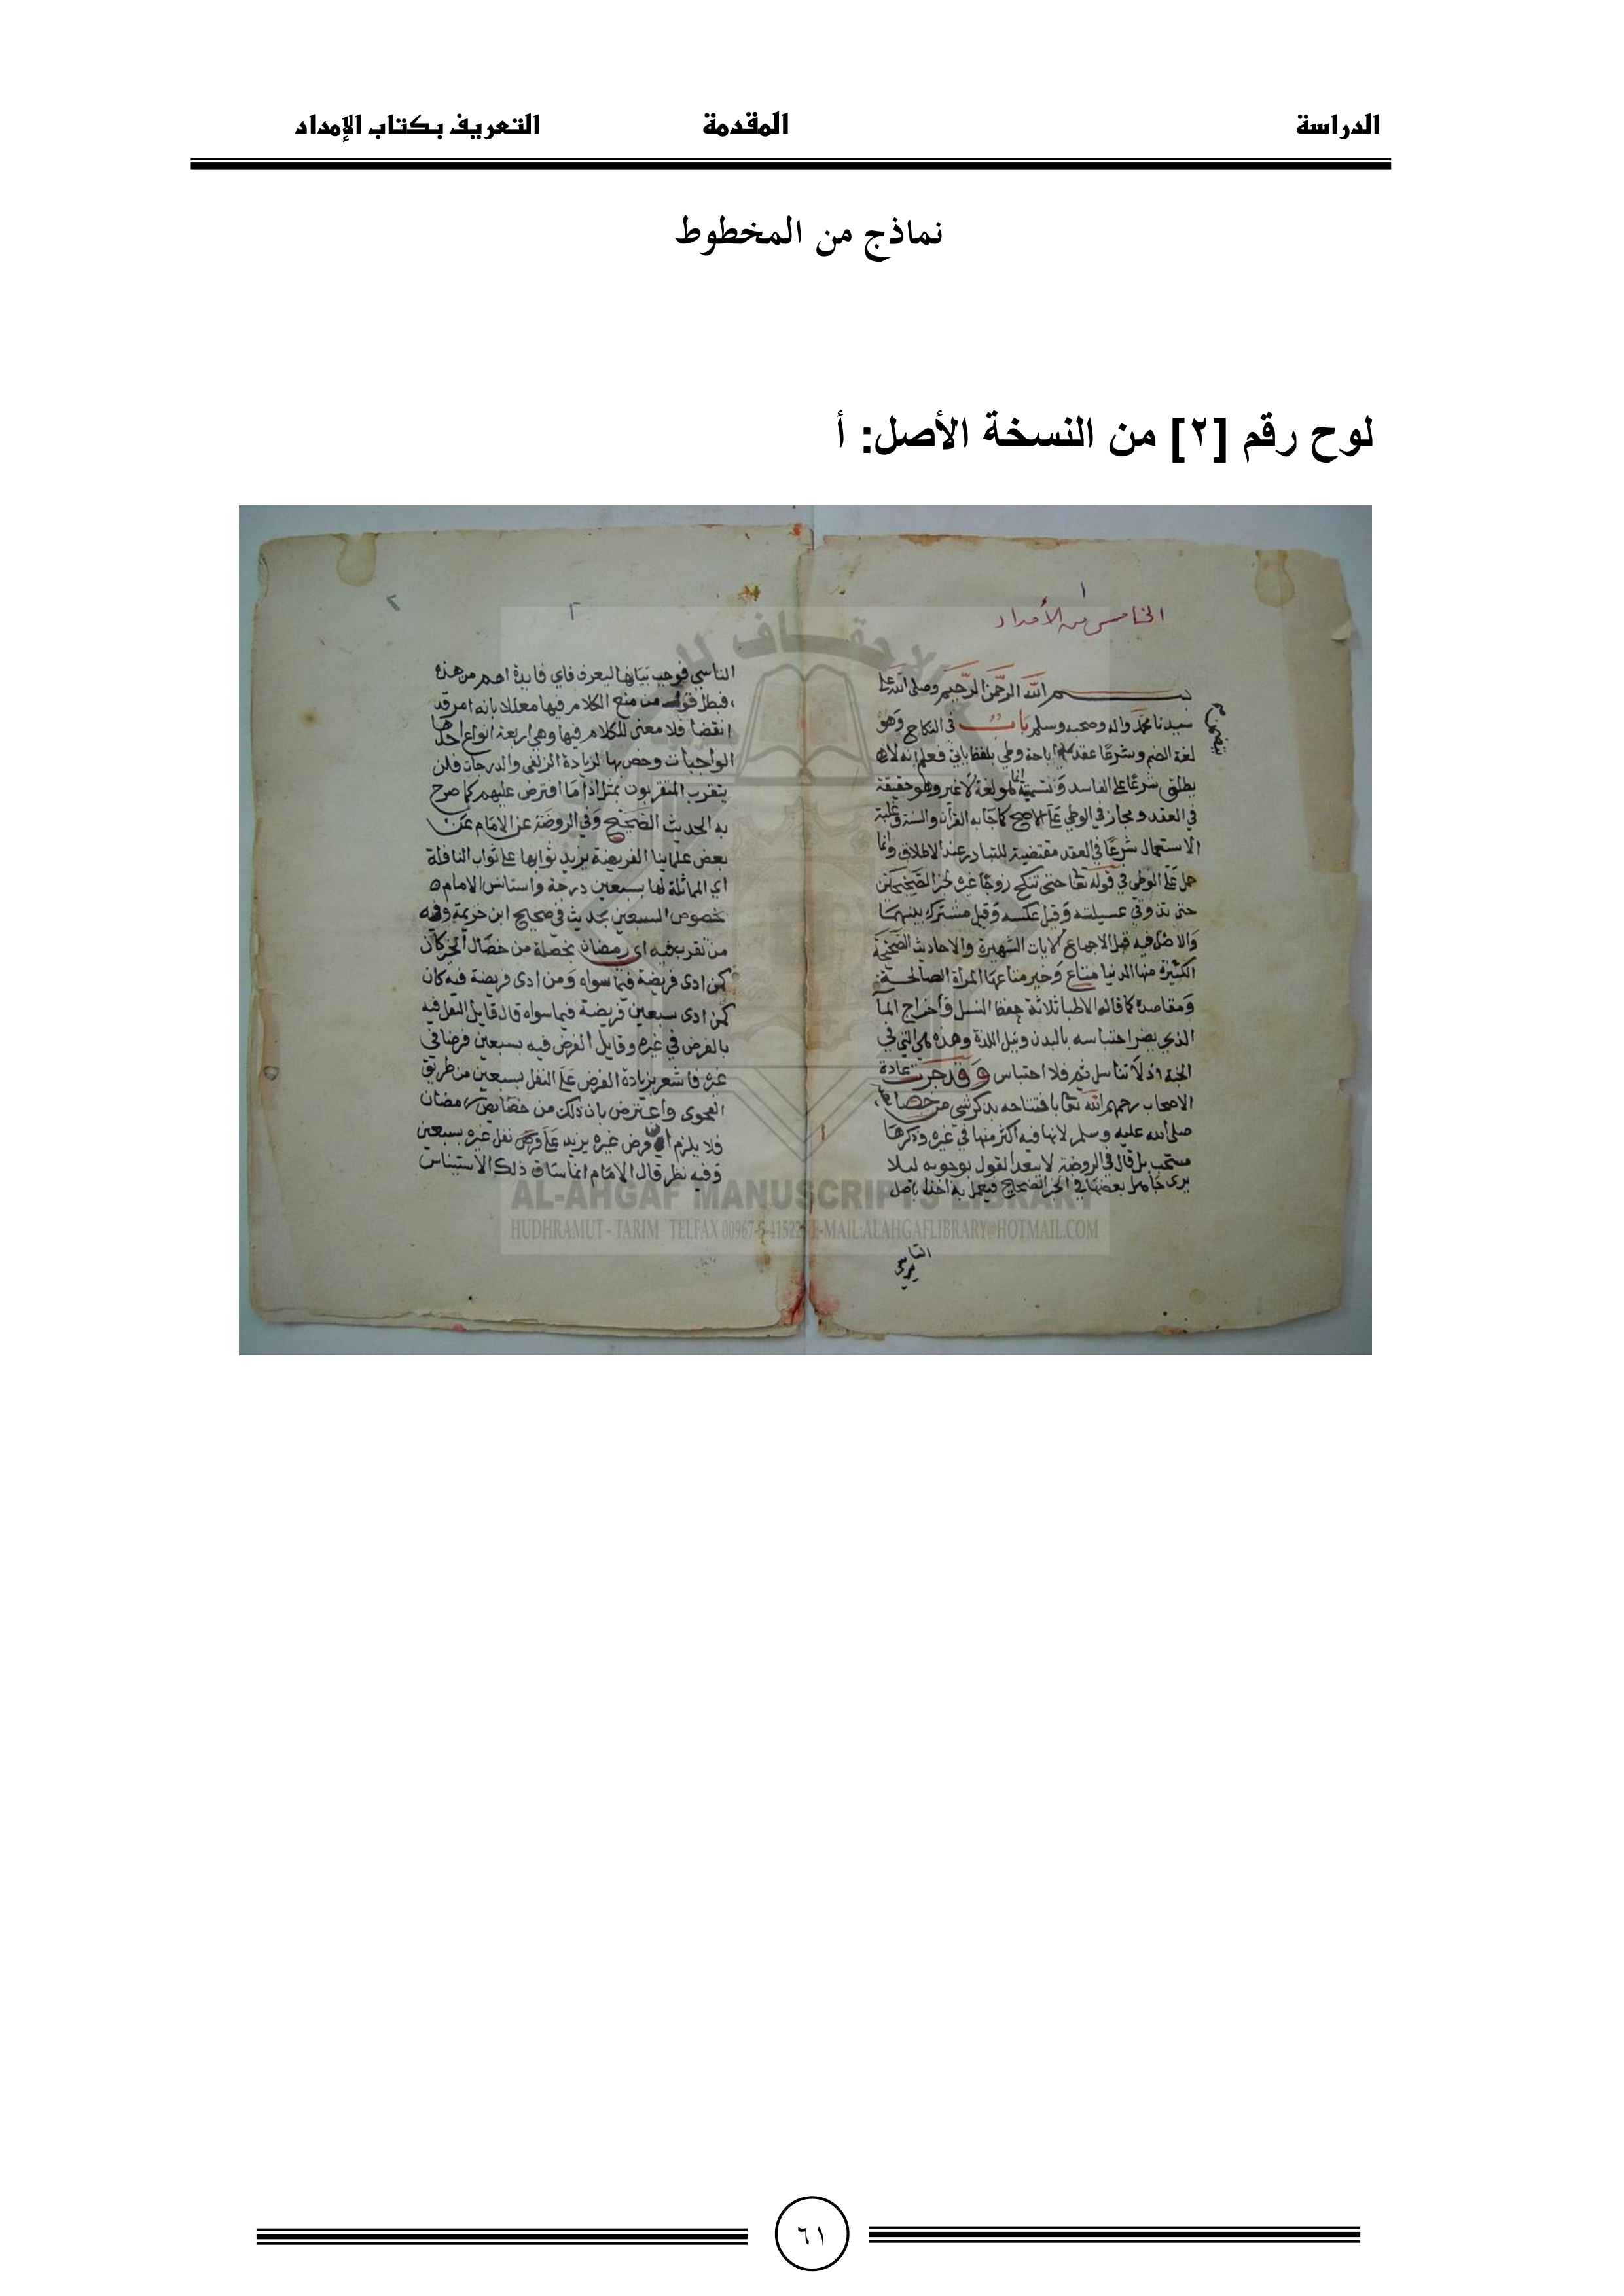 الدراسة المقدمة التعريف بكتاب الإمداد
نماذج من المخطوط
لوح رقم [٢] من النسخة الأصل: أ
١
الخامس من الأمداد
بسم الله الرحمن الرحيم وصلى الله على
سيدنا محمد واله وصحبه وسلم باب في النكاح وهو
لغة الضم وشرعا عقد اباحة وطي بلفظ ياتي فعلم انه لا
يطلق شرعا على الفاسد وتسميته لغة لا غير وهو حقيقة
في العقد ومجاز في الوطي على الاصح كما جا به القرآن والسنة وغلبة
الاستعمال شرعا في العقد مقتضية للتبادر عند الاطلاق وانما
حمل على الوطي في قوله تعا حتى تنكح زوجا غيره لخبر الصحيحين
حتى تذوقي عسيلته وقيل عكسه وقيل مشترك بينهما
والاصل فيه قبل الاجماع الايات الشهيرة والاحاديث الصحيحة
الكثيرة منها الدنيا متاع وخير متاعها المراة الصالحة
ومقاصده كما قاله الاطبا ثلاثة حفظ النسل واخراج الما
الذي يضر احتباسه بالبدن ونيل اللذة وهذه هي التي في
الجنة اذ لا تناسل ثم فلا احتباس وقد جرت عادة
الاصحاب رحمهم الله تعا بافتتاحه بذكر شي من خصايصه
صلى الله عليه وسلم لانها فيه اكثر منها في غيره وذكرها
مستحب بل قال في الروضة لا يبعد القول بوجوبه ليلا
يرى جاهل بعضها في الخبر الصحيح فيعمل به اخذا باصل
التاسي
٢
٢
الناسي فوجب بيانها ليعرف فاي فايدة اهم من هذه
فبطل قول من منع الكلام فيها معللا بانه امر قد
انقضا فلا معنى للكلام فيها وهي اربعة انواع احدها
الواجبات وخص بها لزيادة الزلفى والدرجات فلن
يتقرب المتقربون بمثل اذا ما افترض عليهم كما صرح
به الحديث الصحيح وفي الروضة عن الامام عن
بعض علماينا الفريضة يزيد ثوابها على ثواب النافلة
اي المماثلة لها بسبعين درجة واستانس الامام
خصوص السبعين بحديث في صحيح ابن خزيمة وفيه
من تقرب فيه اي رمضان بخصلة من خصال الخير كان
كمن ادى فريضة فيما سواه ومن ادى فريضة فيه كان
كمن ادى سبعين فريضة فيما سواه قال قابل النفل فيه
بالفرض في غيره وقابل الفرض فيه بسبعين فرضا في
غيره فاشعر بزيادة الفرض على النفل بسبعين من طريق
الفحوى واعترض بان ذلك من خصايص رمضان
فلا يلزم فرض غيره يزيد على نفل غيره بسبعين
وفيه نظر قال الامام انما ساق ذلك الاستيناس
AL-AHGAF MANUSCRIPTS LIBRARY
HUDHRAMUT - TARIM TELFAX 00967-5-415225 E-MAIL:ALAHGAFLIBRARY@HOTMAIL.COM
٦١